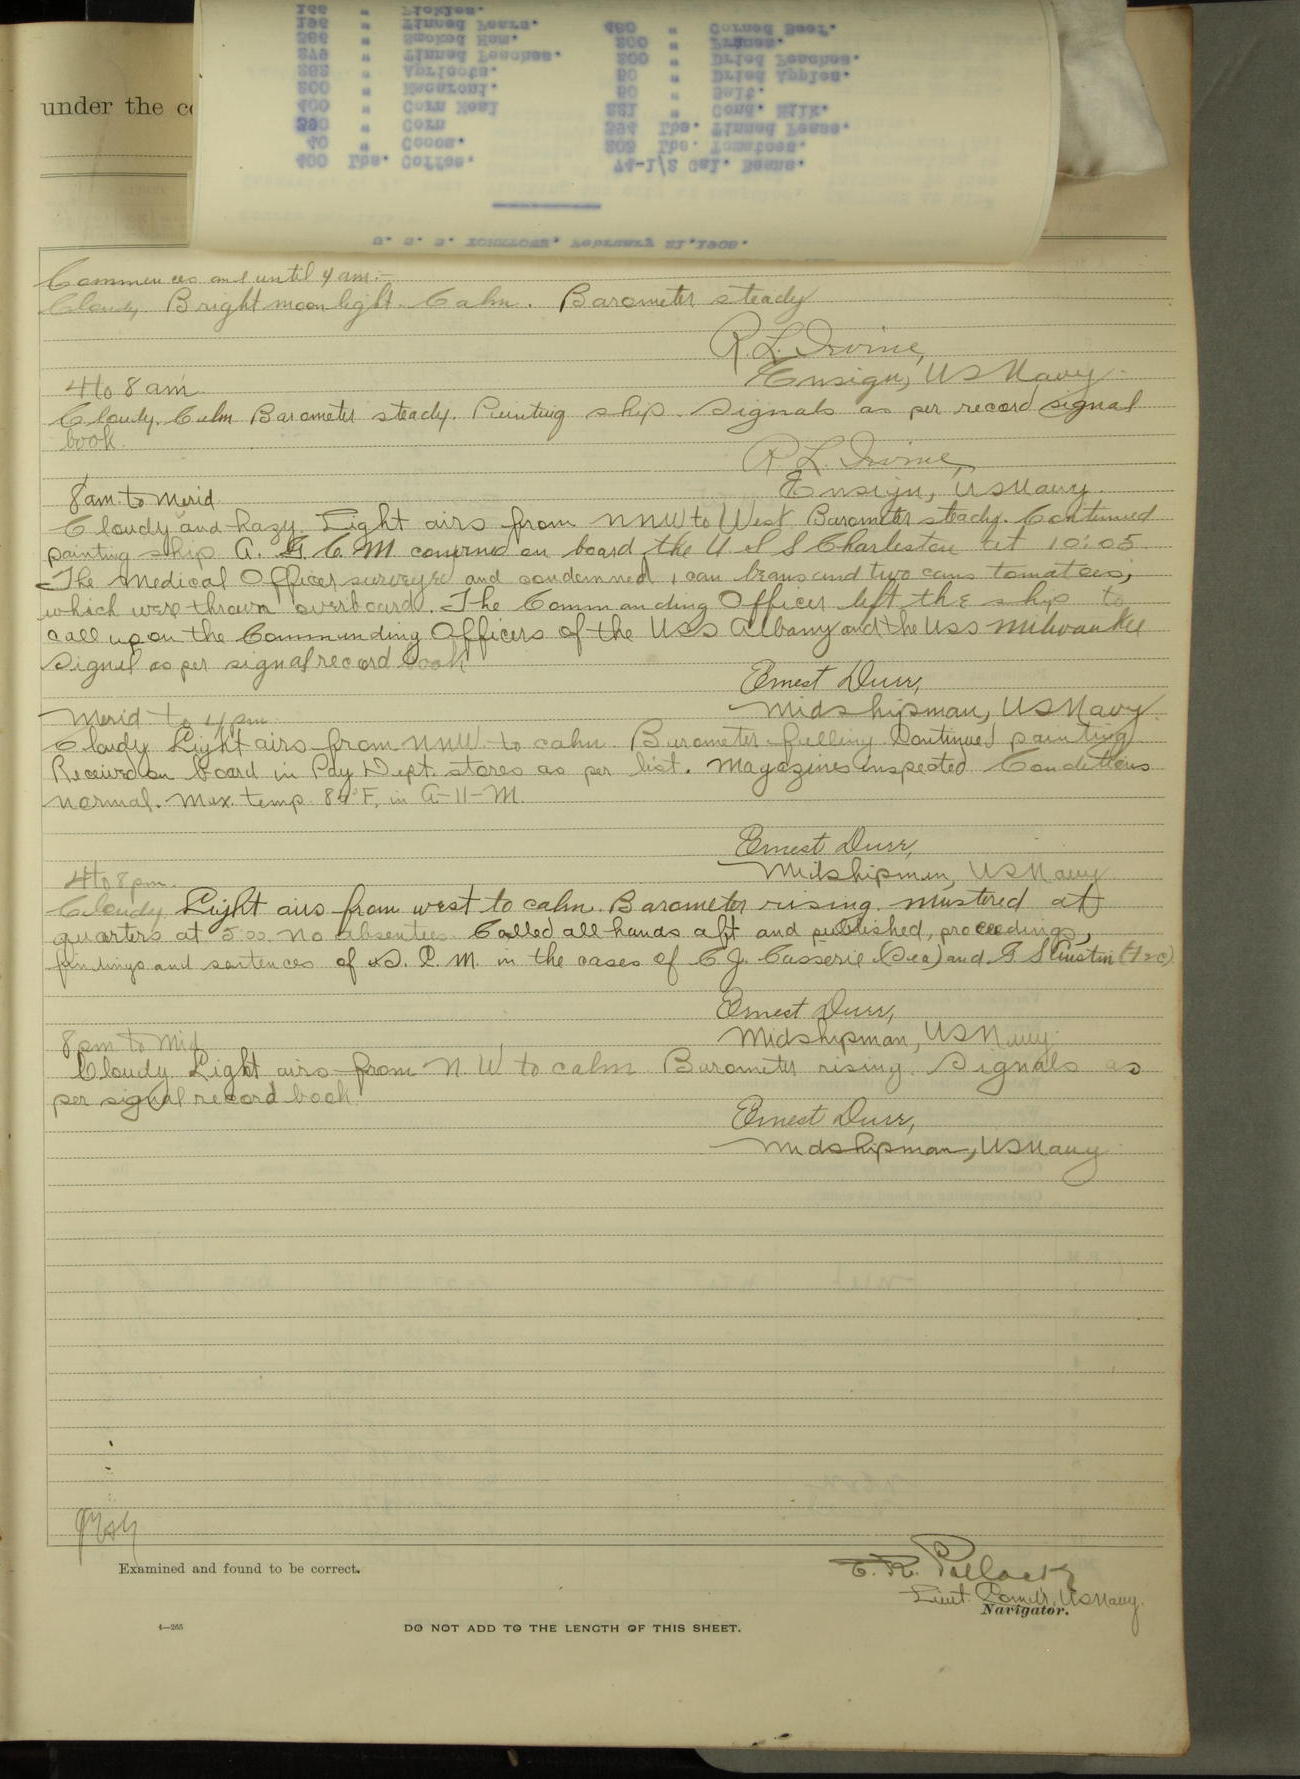 166 " Pickles.
196 " Tinned Pears. 480 " Corned Beef.
384 " Smoked Ham. 200 " Prunes.
279 " Tinned Peaches. 200 " Dried Peaches.
 " Apricots. 50 " Dried Apples.
200 " Macaroni. 50 " Salt.
400 " Corn Meal " Cond. Milk.
 " Corn 394 Lbs. Tinned Pease.
40 " Cocoa. Lbs. Tomatoes.
400 Lbs. Coffee. 74-1/2 Gal. Beans.
U. S. S.
under the co
Commences and until 4 am:-
Cloudy Bright moonlight. Calm. Barometer steady
R. L. Irvine,
Ensign, US Navy.
4 to 8 am
Cloudy. Calm Barometer steady. Painting ship. Signals as per record signal
book.
R. L. Irvine,
Ensign, US Navy.
8 am to Merid
Cloudy and hazy. Light airs from NNW to West Barometer steady. Continued
painting ship A. G. C. M convened on board the U S S Charleston at 10:05.
The Medical Officer surveyed and condemned 1 can beans and two cans tomatoes,
which were thrown overboard. The Commanding Officer left the ship to
call upon the Commanding Officers of the USS Albany and the USS Milwaukee
Signal as per signal record book
Ernest Durr,
Midshipman, US Navy.
Merid to 4 pm
Cloudy Light airs from NNW to calm. Barometer falling Continued painting
Received on board in Pay Dept. stores as per list. Magazines inspected Conditions
normal. Max. temp. F, in A-11-M.
Ernest Durr,
Midshipman, US Navy
4 to 8 pm.
Cloudy Light airs from west to calm. Barometer rising. Mustered at
quarters at 5:00 No absentees. Called all hands aft and published, proceedings,
findings and sentences of S. C. M. in the cases of C J. Casserie (Sea) and G S
Ernest Durr,
Midshipman, US Navy.
8 pm to Mid
Cloudy Light airs from N. W to calm Barometer rising. Signals as
per signal record book.
Ernest Durr,
Midshipman, US Navy
Examined and found to be correct.
E. R. Pollock
Lieut. Comdr, US Navy.
Navigator.
4—265
DO NOT ADD TO THE LENGTH OF THIS SHEET.